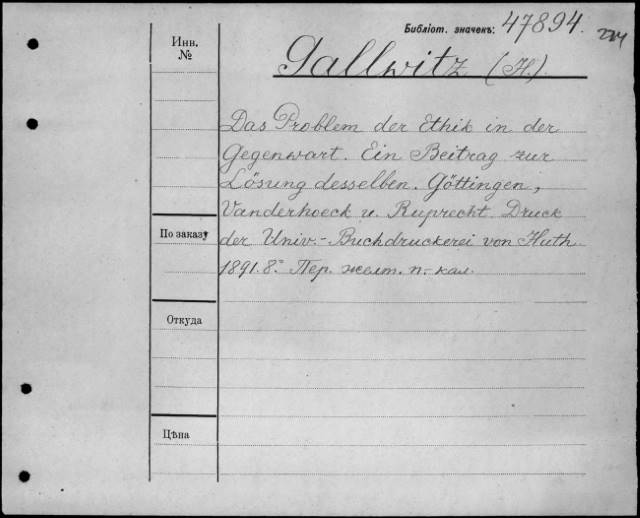 Библіот. значекъ: 47894.
Инв.
№
Gallwitz (H.).
Das Problem der Ethik in der
Gegenwart. Ein Beitrag zur
Lösung desselben. Göttingen,
Vanderhoeck u. Ruprecht. Druck
По заказу
der Univ.-Buchdruckerei von Huth.
1891. 8º. Пер. желт. п.-кал.
Откуда
Цѣна